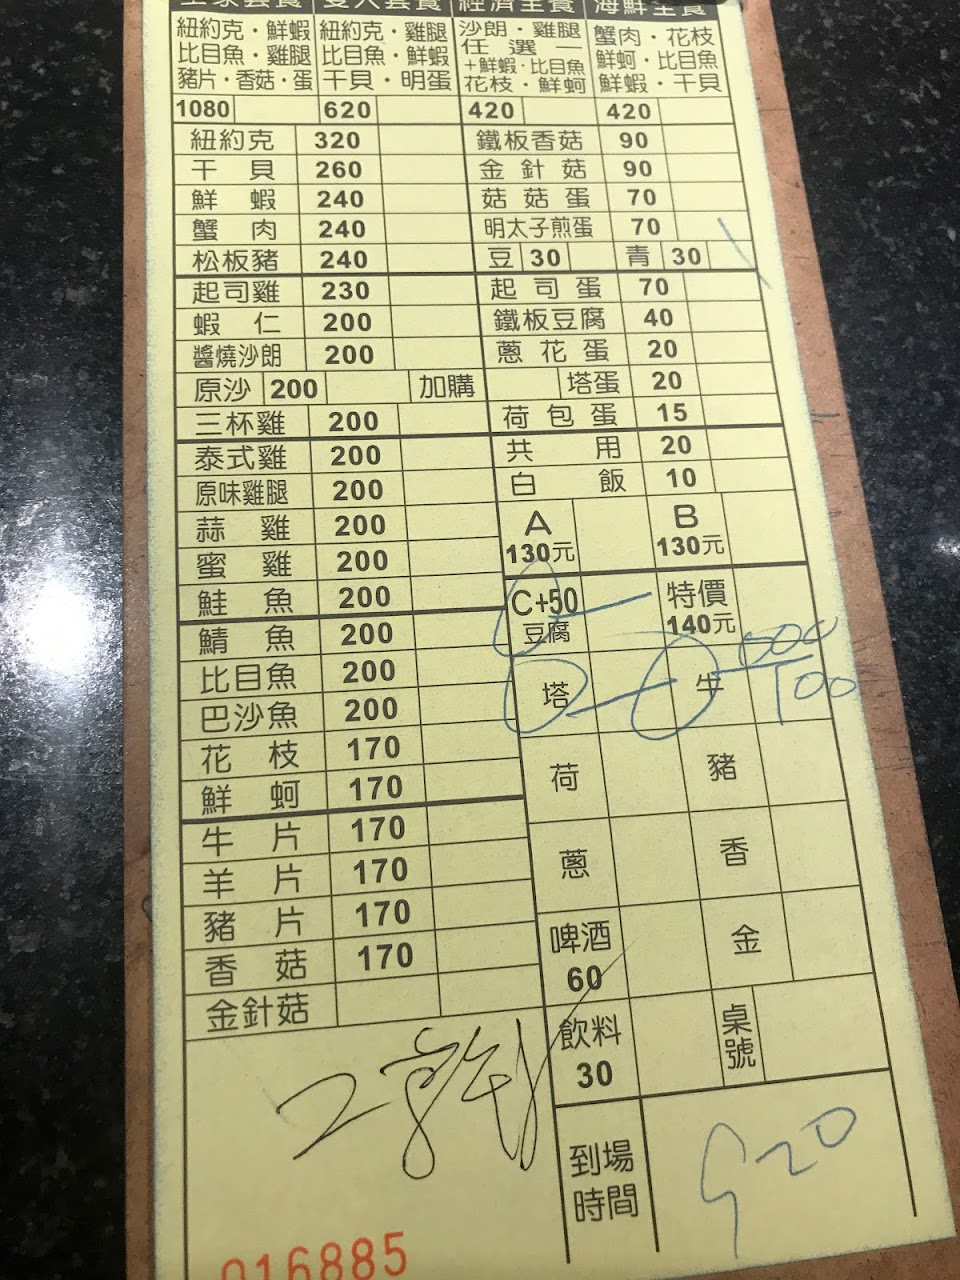 全家套餐 雙人套餐 經濟全餐 海鮮全餐
紐約克・鮮蝦 紐約克・雞腿 沙朗・雞腿 蟹肉・花枝
比目魚・雞腿 比目魚・鮮蝦 任選一 鮮蚵・比目魚
豬片・香菇・蛋 干貝・明蛋 +鮮蝦・比目魚 鮮蝦・干貝
花枝・鮮蚵
1080 620 420 420
紐約克 320 鐵板香菇 90
干貝 260 金針菇 90
鮮蝦 240 菇菇蛋 70
蟹肉 240 明太子煎蛋 70
松板豬 240 豆 30 青 30
起司雞 230 起司蛋 70
蝦仁 200 鐵板豆腐 40
醬燒沙朗 200 蔥花蛋 20
原沙 200 加購 塔蛋 20
三杯雞 200 荷包蛋 15
泰式雞 200 共用 20
原味雞腿 200 白飯 10
蒜雞 200 A 130元 B 130元
蜜雞 200
鮭魚 200 C+50 豆腐 特價 140元
鯖魚 200
比目魚 200 塔 牛
巴沙魚 200
花枝 170 荷 豬
鮮蚵 170
牛片 170 蔥 香
羊片 170
豬片 170 啤酒 60 金
香菇 170
金針菇 飲料 30 桌號
到場時間 920
016885